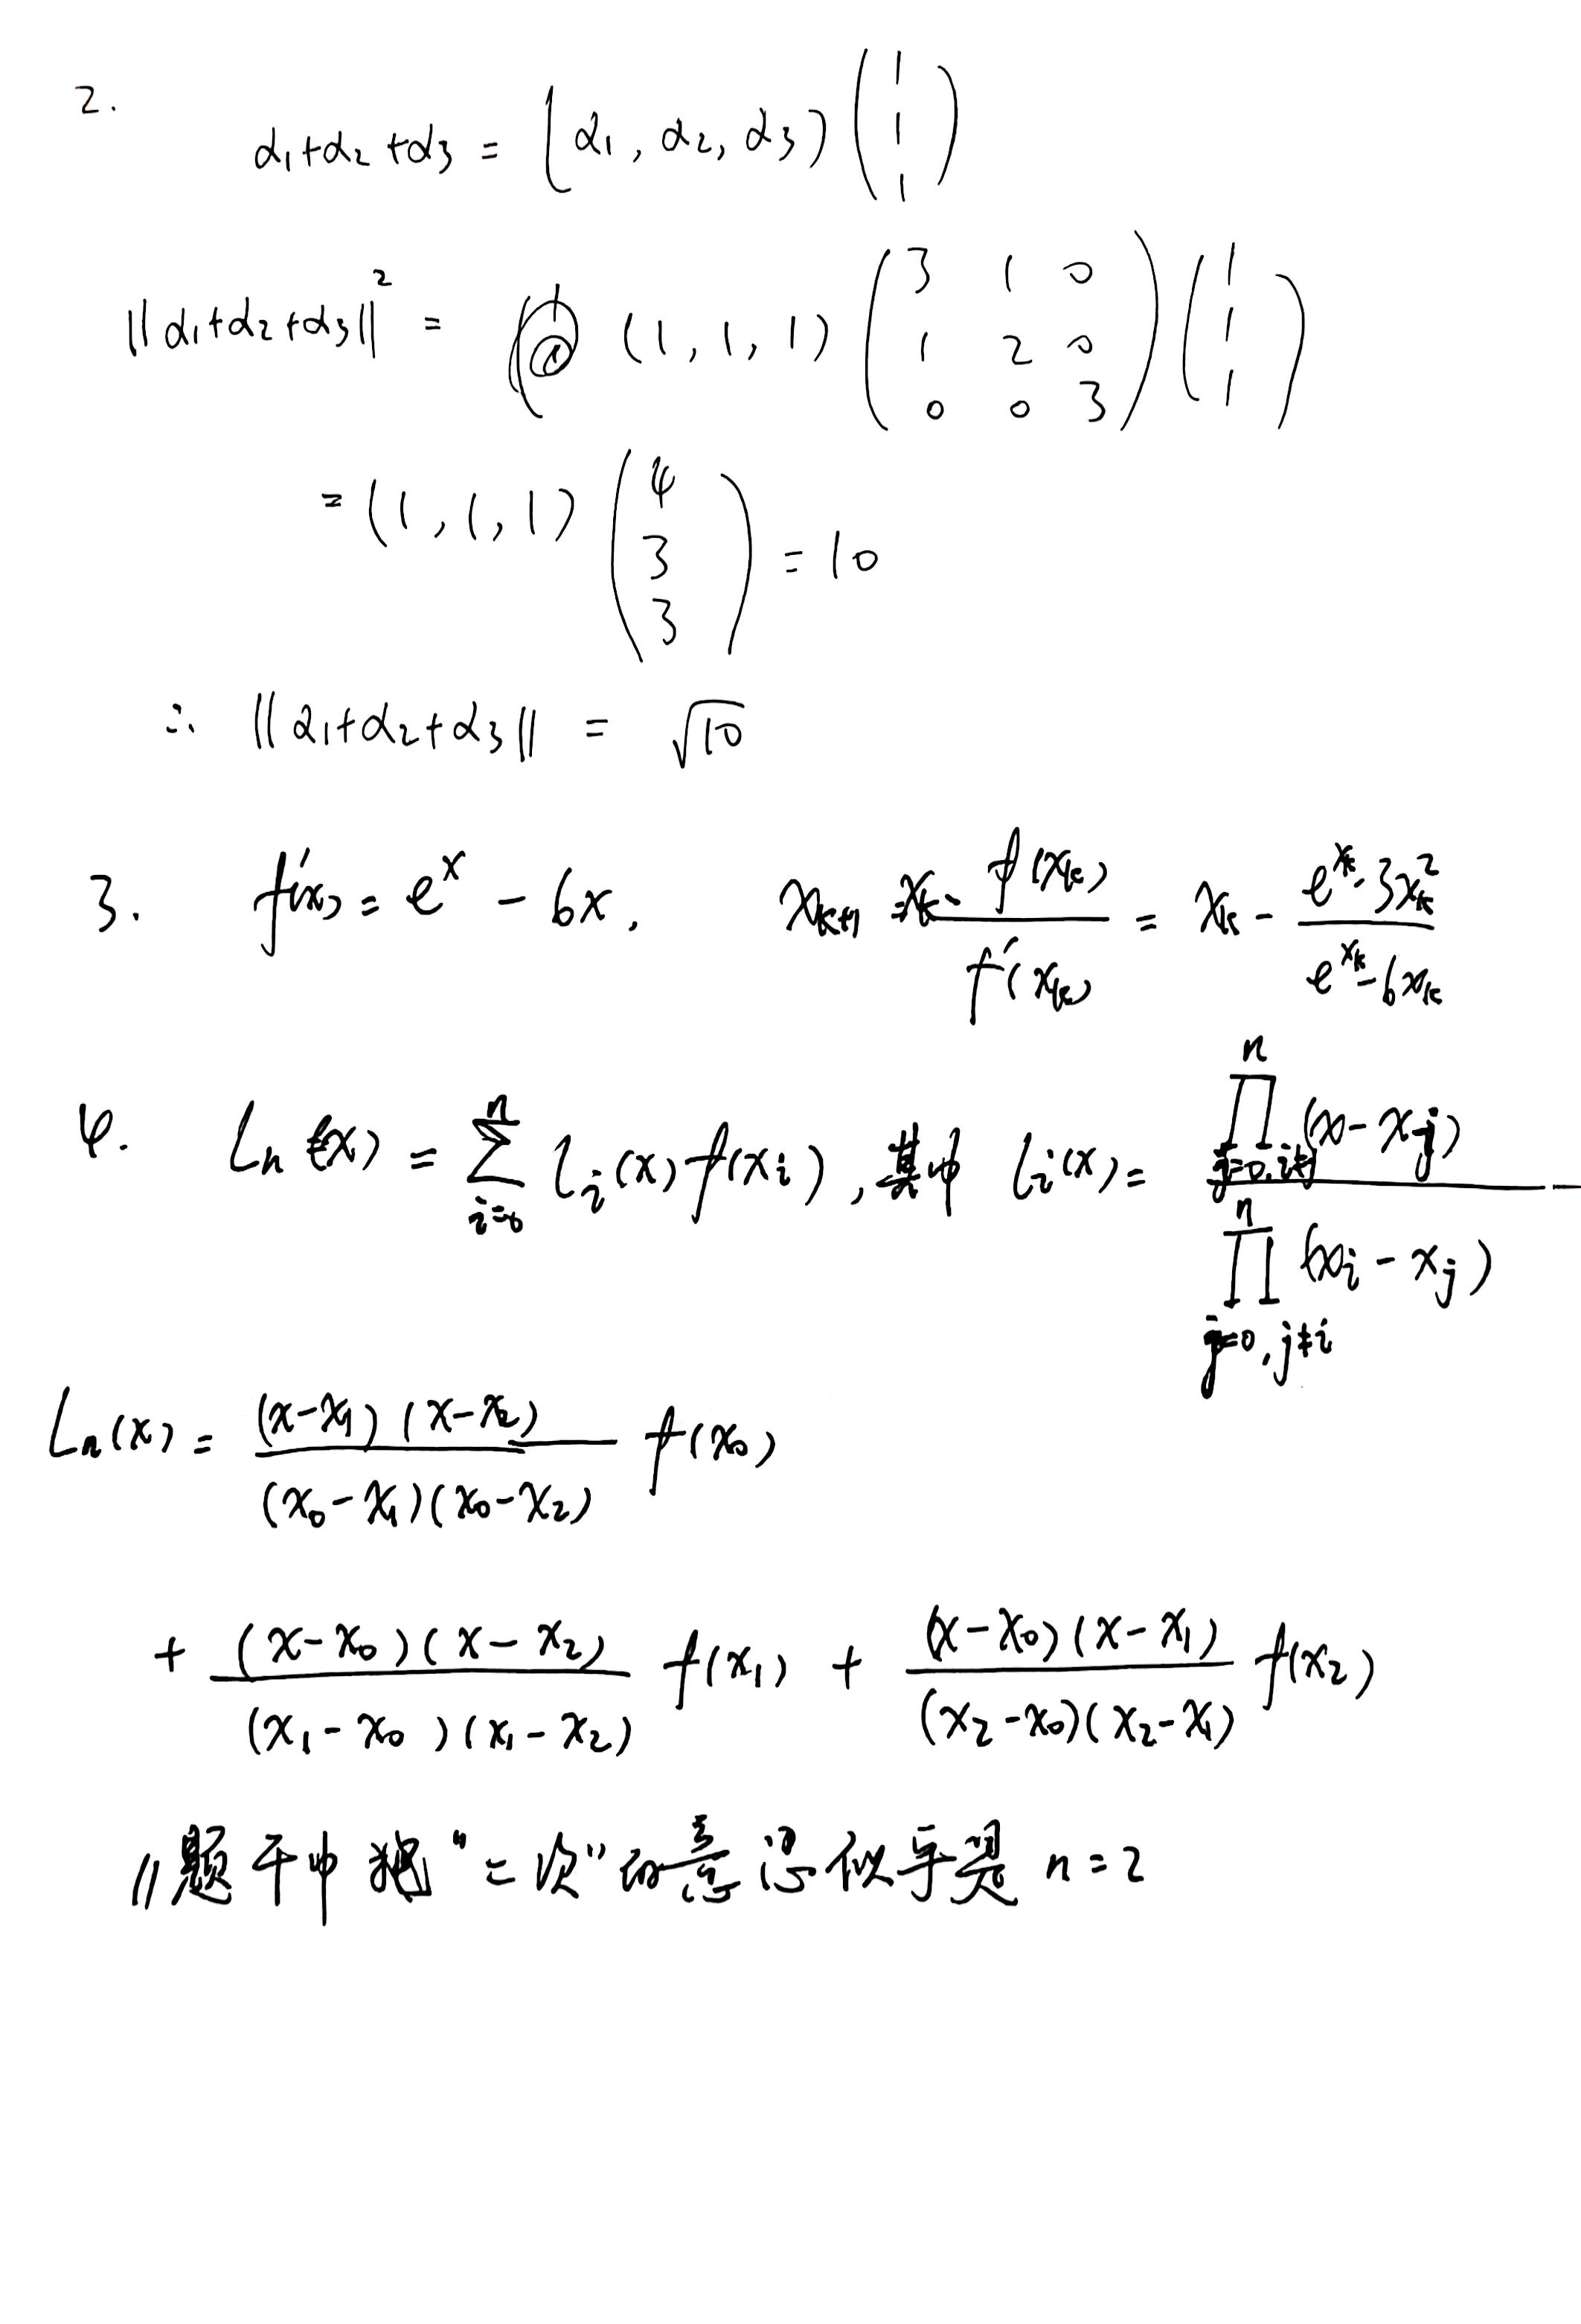 2. α₁+α₂+α₃ = [α₁, α₂, α₃) (1 1 1)
||α₁+α₂+α₃||² = (1, 1, 1) (3 1 0 1 2 0 0 0 3) (1 1 1)
= (1, 1, 1) (4 3 3) = 10
∴ ||α₁+α₂+α₃|| = √10
3. f'(x) = eˣ - 6x, xₖ₊₁ = xₖ - f(xₖ)/f'(xₖ) = xₖ - (e^xₖ - 3xₖ²)/(e^xₖ - 6xₖ)
4. Lₙ(x) = Σⁿᵢ₌₀ lᵢ(x) f(xᵢ), 其中 lᵢ(x) = ∏ⁿ_{j=0, i≠j}(x-xⱼ) / ∏ⁿ_{j=0, j≠i}(xᵢ-xⱼ)
Lₙ(x) = (x-x₁)(x-x₂)/(x₀-x₁)(x₀-x₂) f(x₀)
+ (x-x₀)(x-x₂)/(x₁-x₀)(x₁-x₂) f(x₁) + (x-x₀)(x-x₁)/(x₂-x₀)(x₂-x₁) f(x₂)
//题干中 "二次"的意思似乎是 n=2